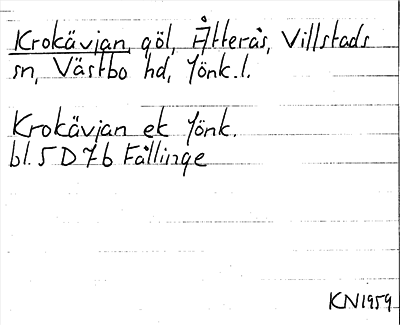 Krokävjan, göl, Åtterås, Villstads
sn, Västbo hd, Jönk. l.
Krokävjan ek Jönk.
bl. 5 D 7 b Fållinge
KN1959